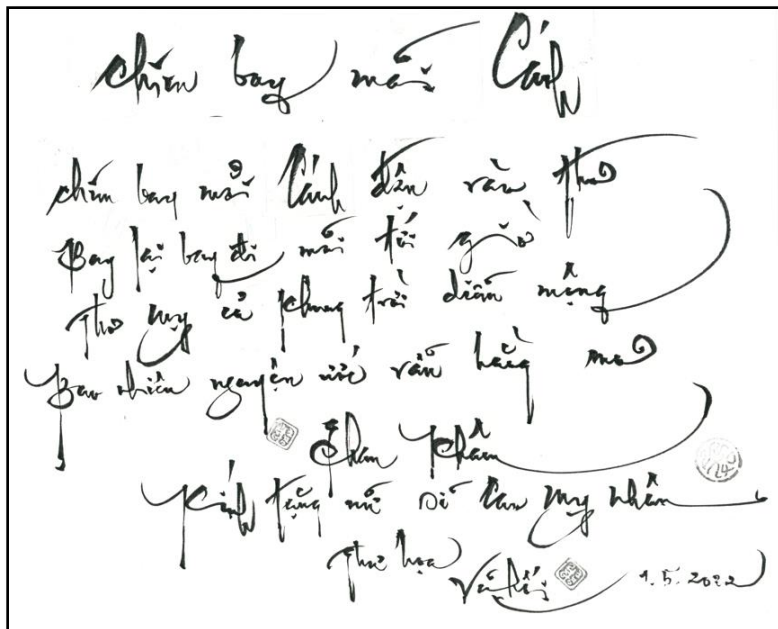 chim bay mỏi Cánh
chim bay mỏi Cánh đến thơ
Bay lại bay đi mãi tới giờ
Thơ Mỵ cả khung trời diễm mộng
Bao nhiêu nguyện ước vẫn hằng mơ
Kính tặng nữ sĩ Cao Mỵ Nhân
Thư họa Vũ Hối 1.5.2022